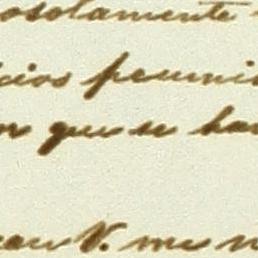 osolamente
cios pecuni
or que se ha
V. me